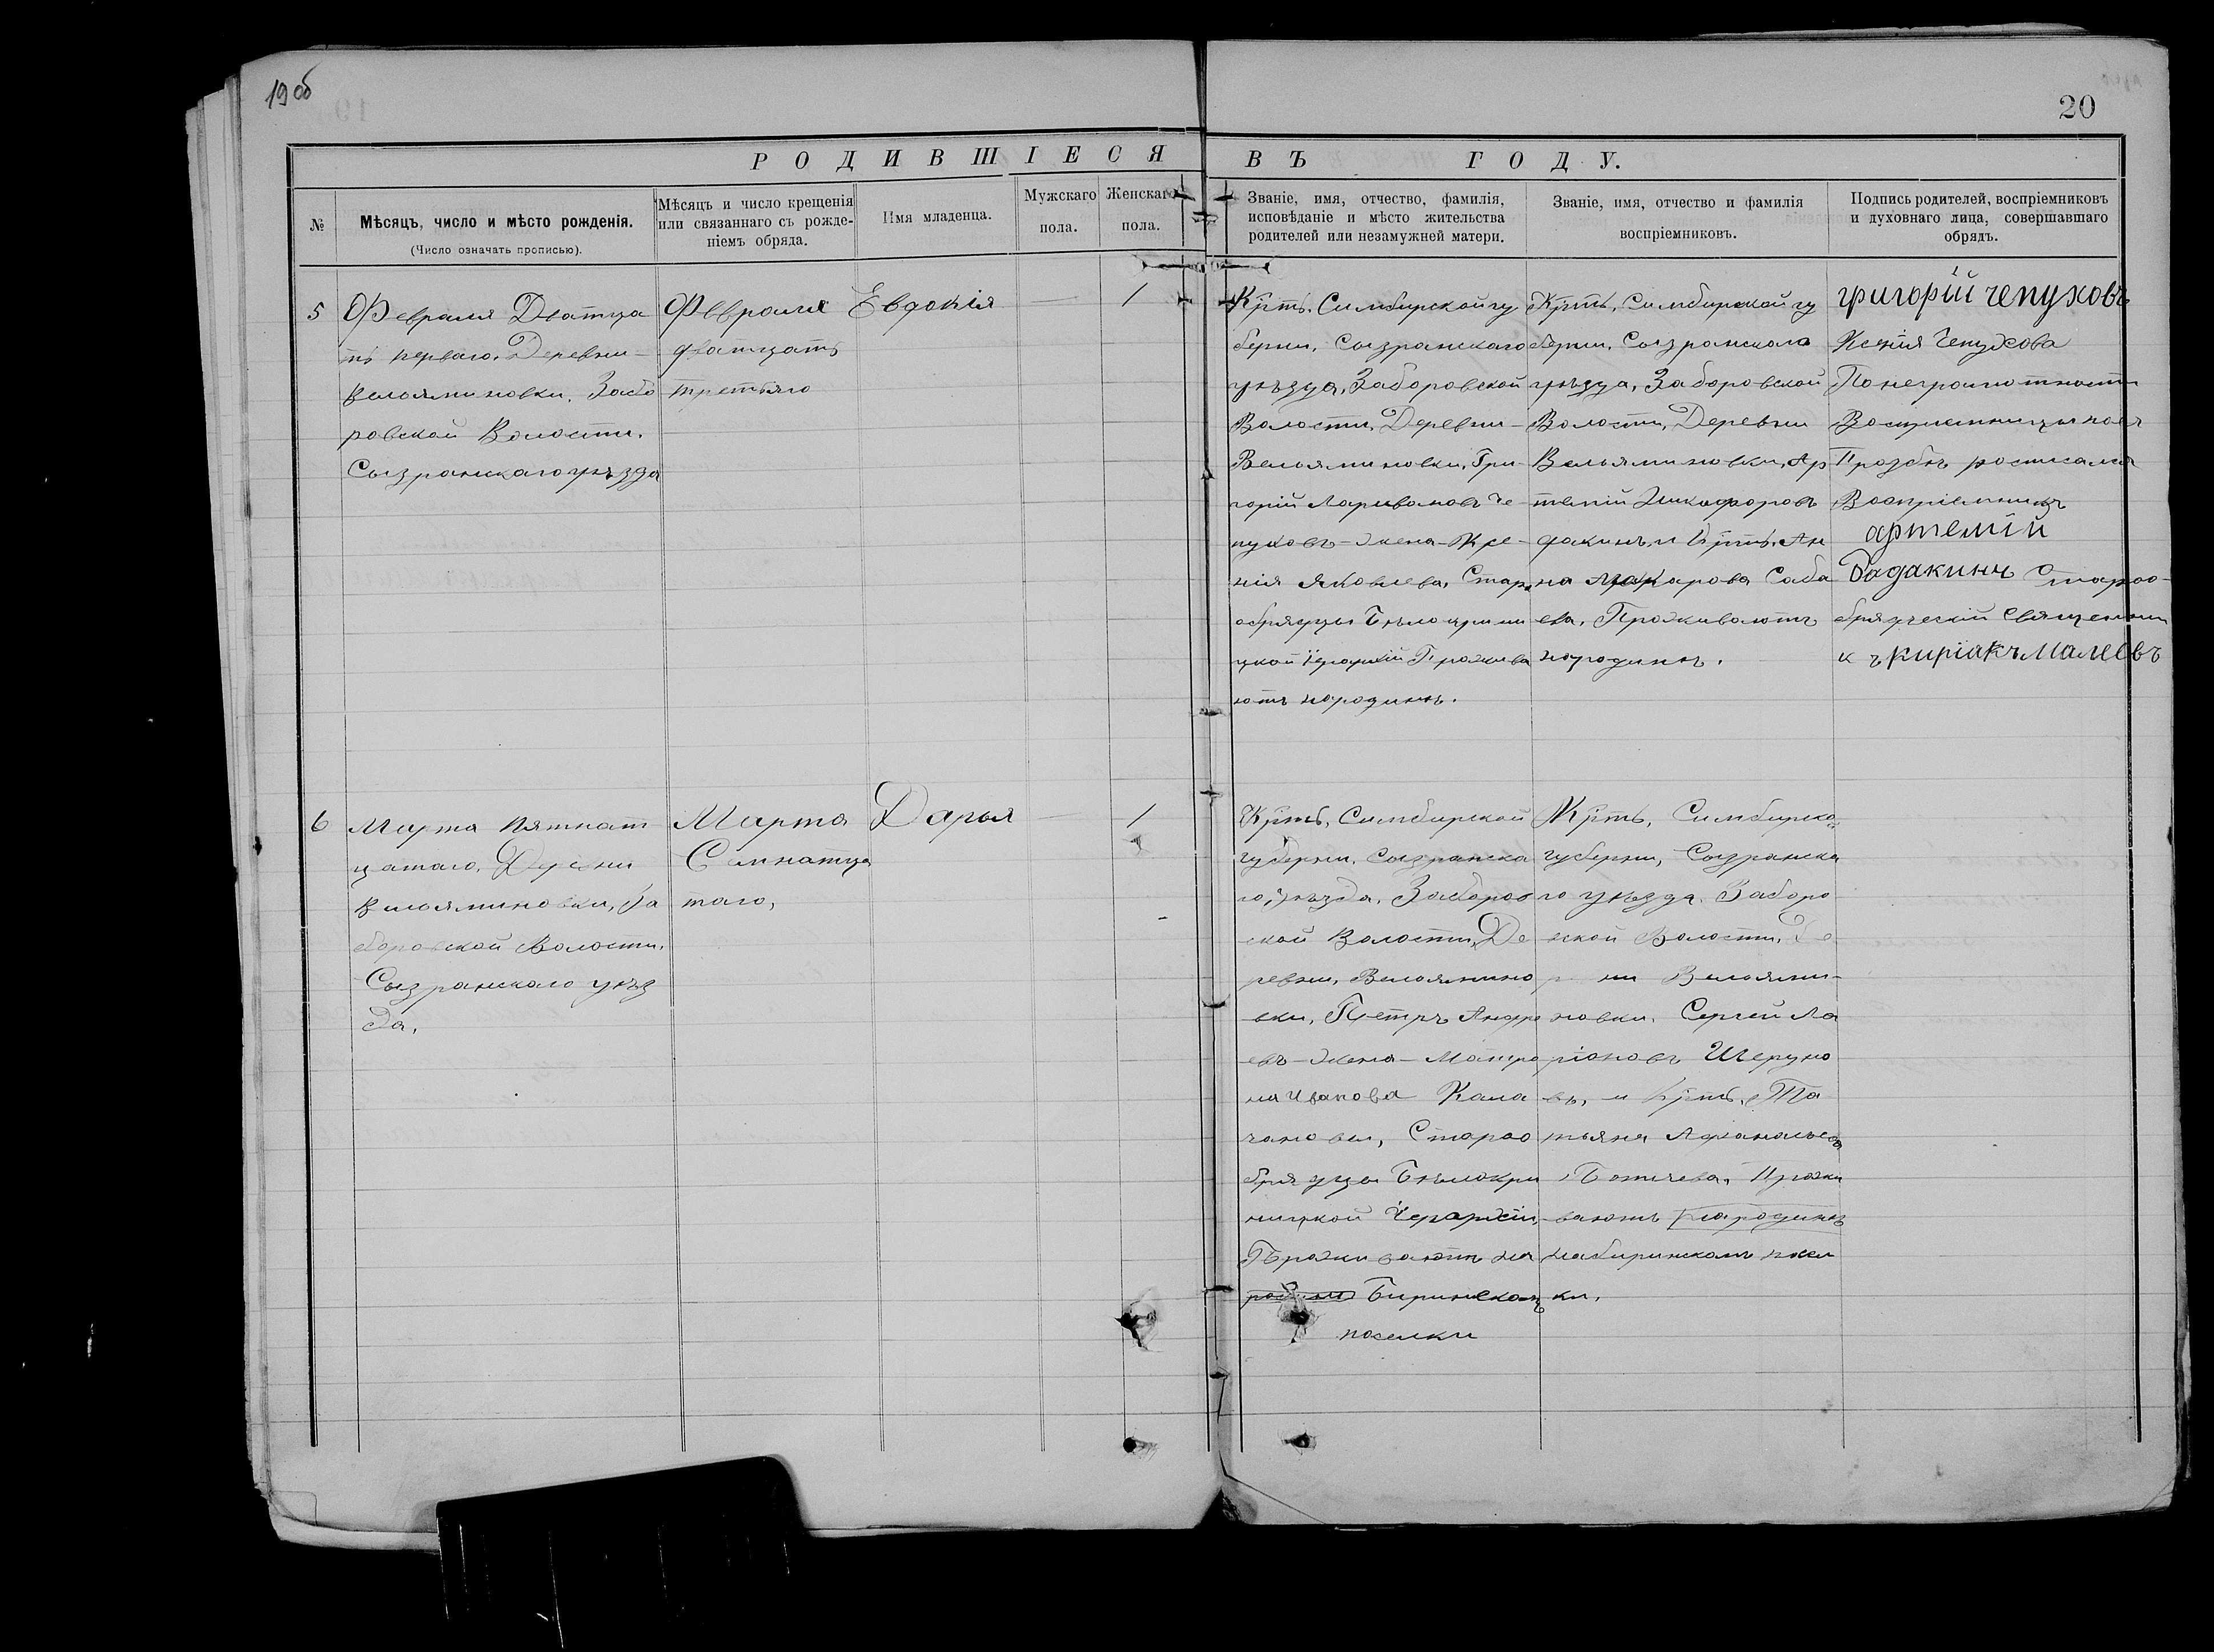 19 об
20
РОДИВШІЕСЯ ВЪ ГОДУ.
№
Мѣсяцъ, число и мѣсто рожденія.
(Число означать прописью).
Мѣсяцъ и число крещенія
или связаннаго съ рожде-
ніемъ обряда.
Имя младенца.
Мужскаго
пола.
Женскаго
пола.
Званіе, имя, отчество, фамилія,
исповѣданіе и мѣсто жительства
родителей или незамужней матери.
Званіе, имя, отчество и фамилія
воспріемниковъ.
Подпись родителей, воспріемниковъ
и духовнаго лица, совершавшаго
обрядъ.
5
Февраля Дватца
ть перваго. Деревни-
Вельяминовки. Забо
ровской Волости.
Сызранскаго уѣзда
Февраля
дватцать
третьяго
Евдокія
1
Крть. Симбирской гу
берни. Сызранскаго
уѣзда, Заборовской
Волости, Деревни-
Вельяминовки. Гри-
горій Ларивоновъ Че-
пуховъ-жена-Ксе-
нія Яковлева, Стар
обрядцы Бѣлокрини
цкой Іерархій Прожива
ютъ народинѣ.
Крть. Симбирской гу
берни. Сызранскаго
уѣзда, Заборовской
Волости, Деревни
Вельяминовки, Ар
темій Никифоровъ
дакинъ и Крть. Ан
на Макарова Саба
ева. Проживаютъ
народинѣ.
григорій чепуховъ
Ксенія Чепухова
Понеграмотности
Воспріемницы поея
Прозбѣ росписался
Воспріемникъ
артемій
Бадакинъ Старо-
обрядческій Священни
къ киріакъ малеевъ
6
Марта Пятнат
цатаго. Деревни
Вельяминовки, За
боровской Волости.
Сызранскаго уѣз
да.
Марта
Семнатца
таго,
Дарья
1
Крть, Симбирской
губерни. Сызранска
го, уѣзда. Заборов
ской Волости, Де
ревни, Вельямино
вки, Петръ Андре
евъ-жена-Матро
на Иванова Кала
чановы, Старо
обрядцы Бѣлокри
ницкой Іерархіи,
Проживаютъ на
Биринскомъ
поселки
Крть, Симбирско
губерни, Сызранска
го уѣзда. Заборо
вской Волости. Де
ревни Вельями-
новки. Сергей Ла
ріоновъ Шеруно
въ, и Крть, Та
тьяна Афанасьева
Ботчева, Прожи
ваютъ народинѣ
набиринскомъ посел
ки.